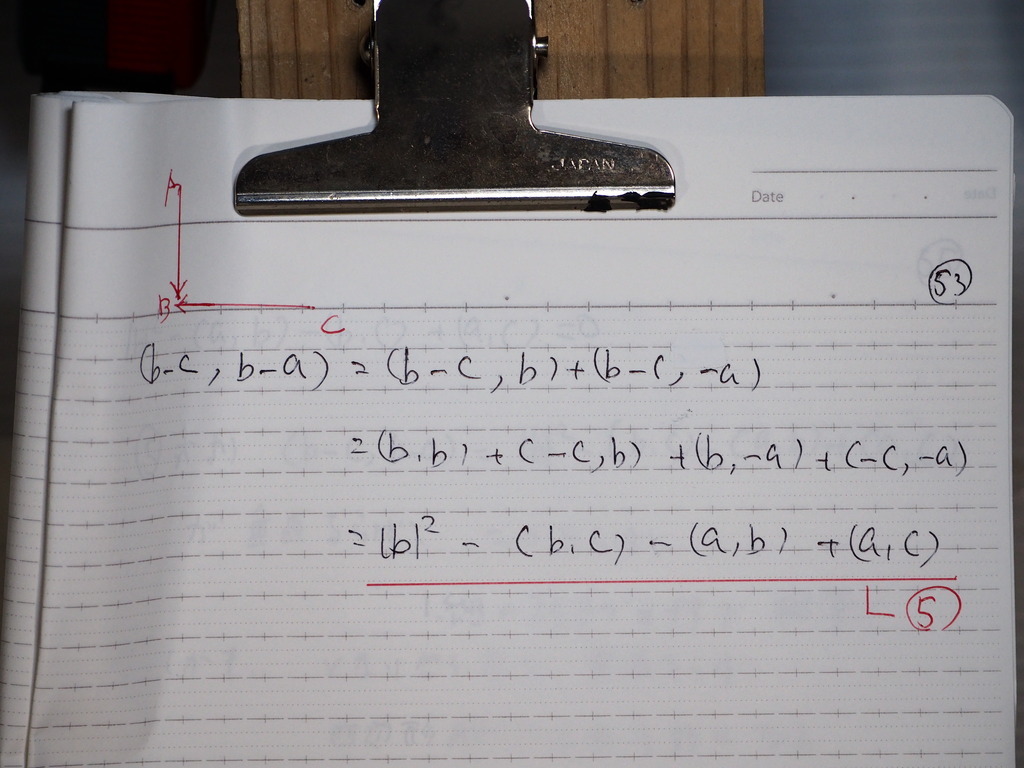 JAPAN
Date
A
(53)
B
C
(b-c, b-a) = (b-c, b) + (b-c, -a)
= (b, b) + (-c, b) + (b, -a) + (-c, -a)
= |b|² - (b, c) - (a, b) + (a, c)
⑤